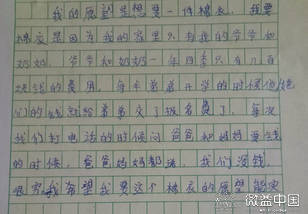 我的愿望是想要一件棉衣,我要
棉衣是因为我的家里只有我的爷爷和
奶奶,爷爷和奶奶一年四季只有几百
块钱的费用,每年弟弟开学的时候他
们的钱就给弟弟交了报名费了,每次
我们打电话的时候问爸爸和妈妈要钱
的时候,爸爸妈妈都说,我们没钱,
我希望我要这个棉衣的愿望能实
微益中国